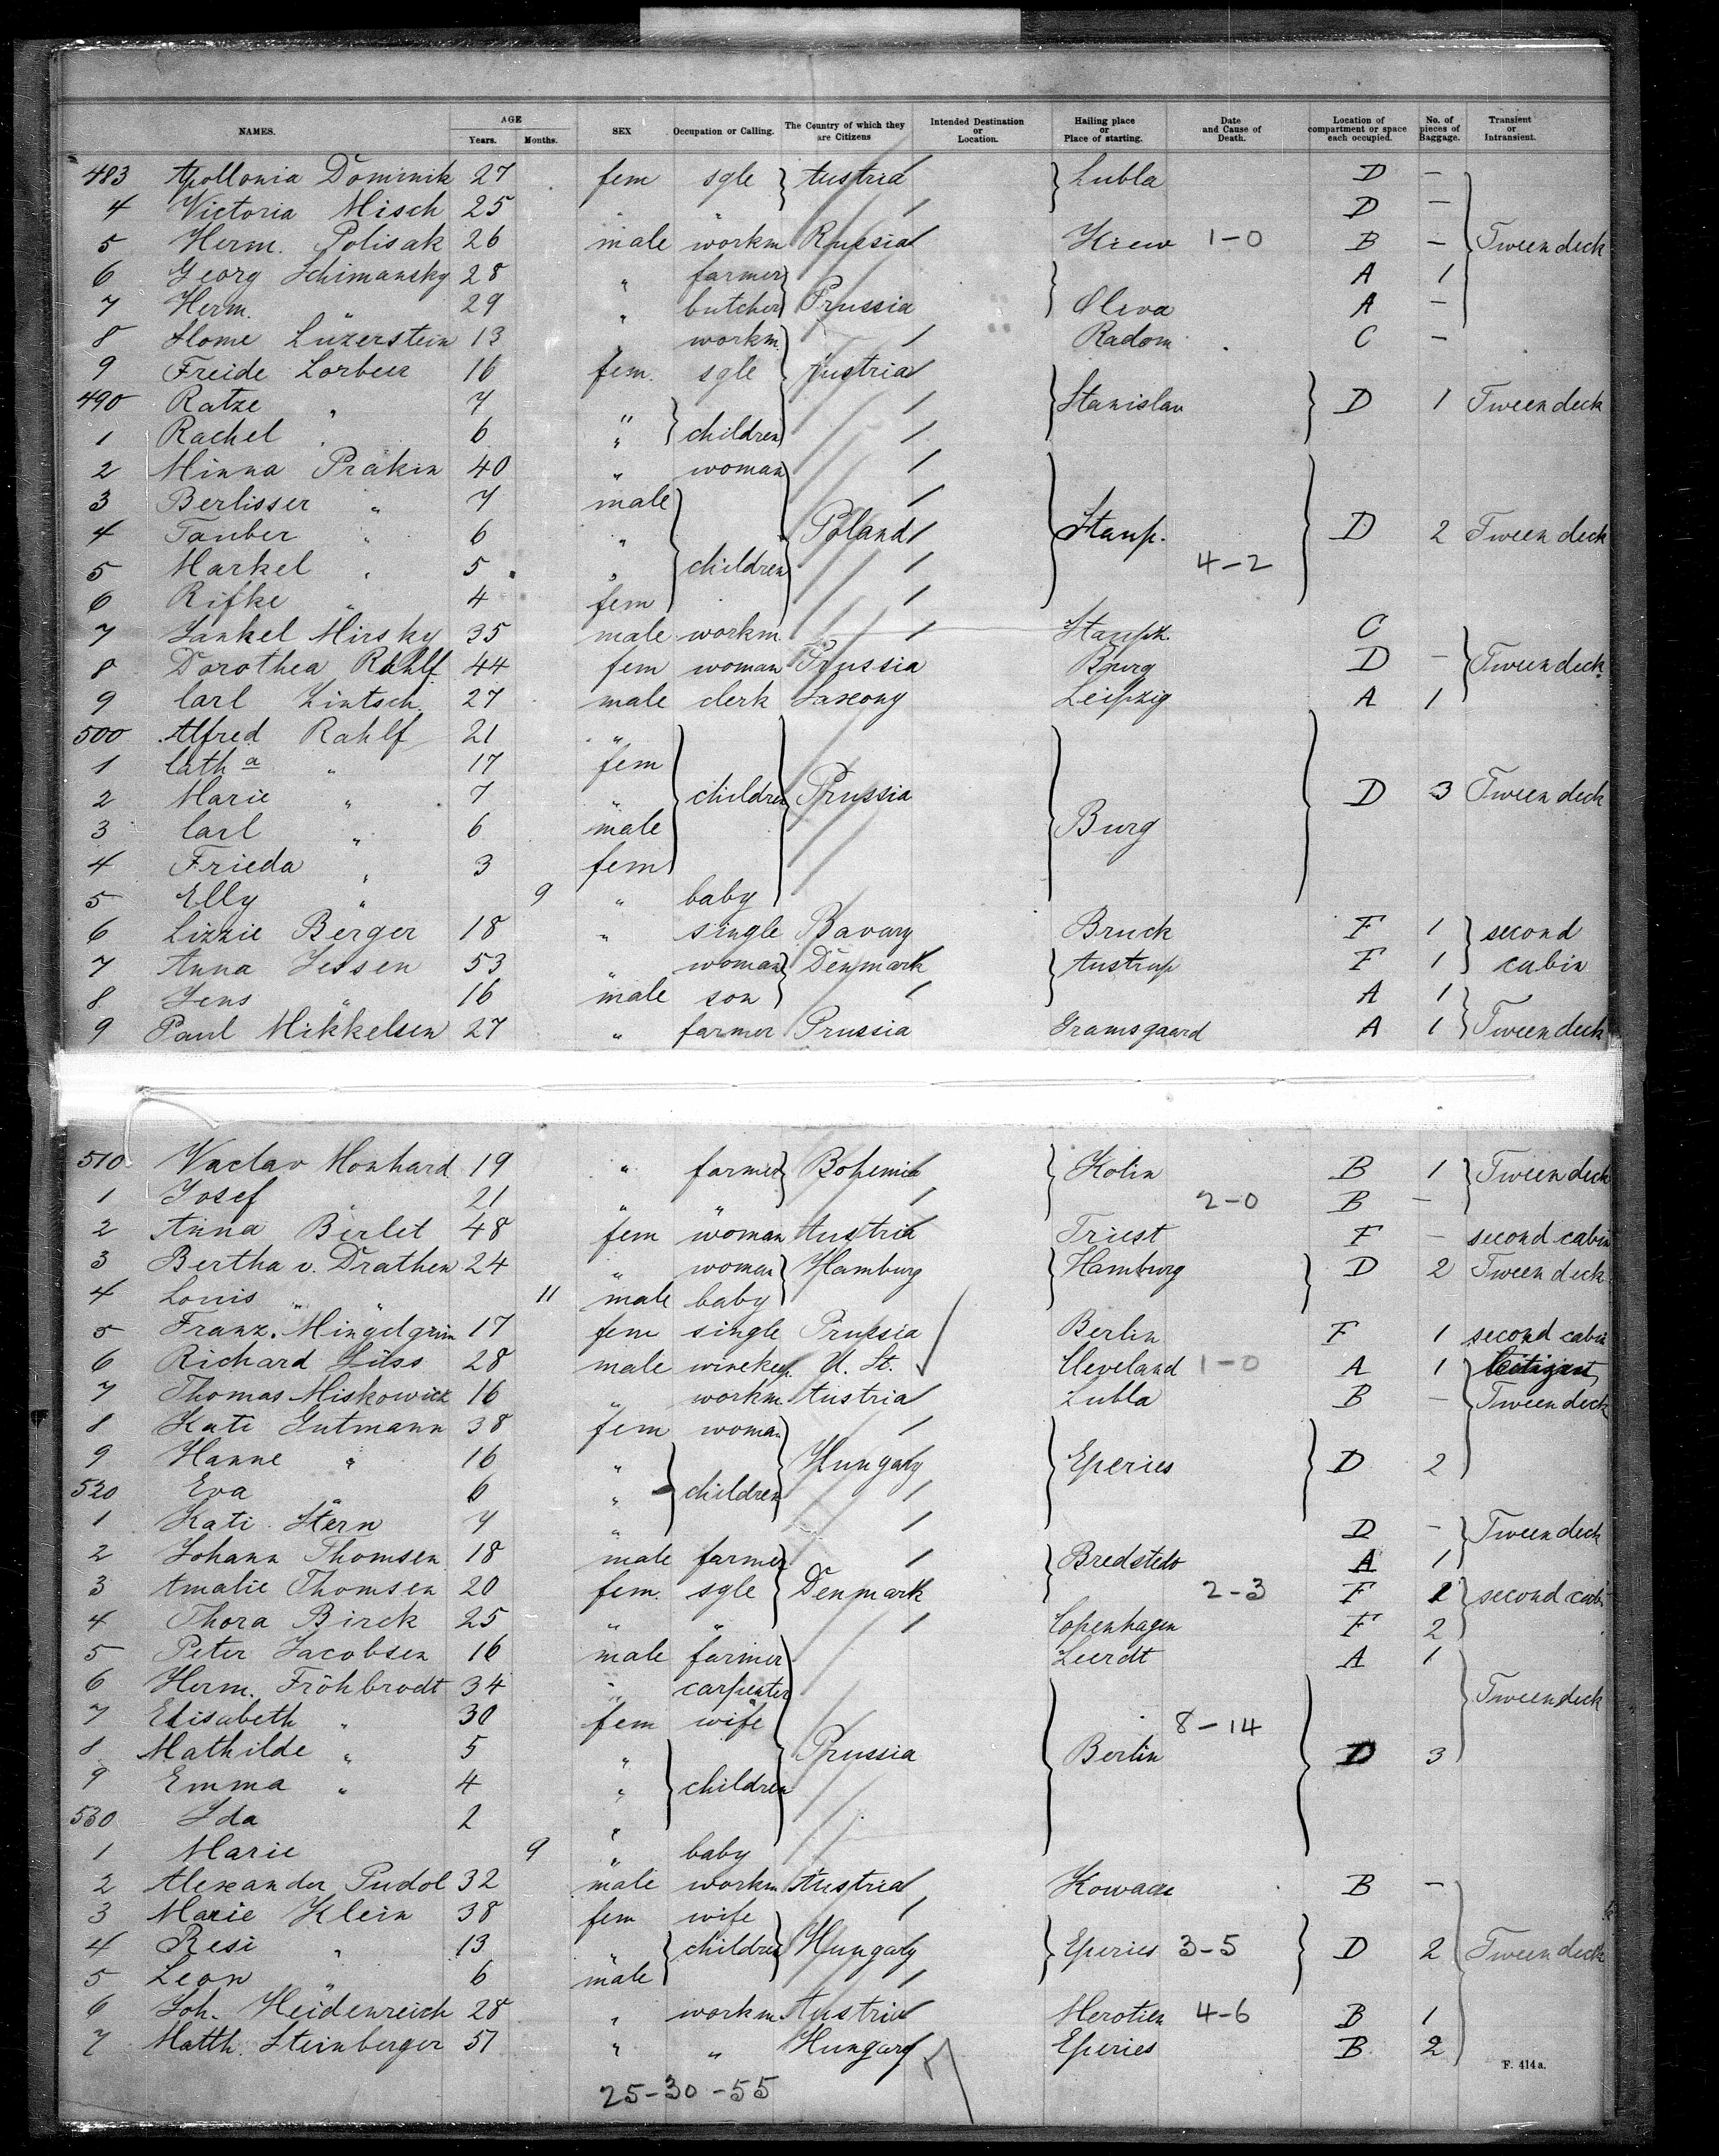 NAMES. AGE Years. Months. SEX Occupation or Calling. The Country of which they are Citizens Intended Destination or Location. Hailing place or Place of starting. Date and Cause of Death. Location of compartment or space each occupied. No. of pieces of Baggage. Transient or Intransient.
483 Apollonia Dominik 27 fem sgle Austria Lubla D –
4 Victoria Misch 25 " " D –
5 Herm. Polisak 26 male workm Russia Kiew 1-0 B – Tween deck
6 Georg Schimansky 28 " farmer A 1
7 Herm. " 29 " butcher Prussia Oliva A –
8 Slome Luzerstein 13 " workm. Radom C –
9 Freide Lorber 16 fem. sgle Austria
490 Ratze " 7 " Stanislau D 1 Tween deck
1 Rachel " 6 " children
2 Minna Präkin 40 " woman
3 Berlisser " 7 male
4 Tauber " 6 " Poland Staup. D 2 Tween deck
5 Markel " 5 " children 4-2
6 Rifke " 4 fem
7 Jankel Mirsky 35 male workm Staupk. C
8 Dorothea Rahlf 44 fem woman Prussia Burg D – Tween deck
9 Carl Lintsch 27 male clerk Saxony Leipzig A 1
500 Alfred Rahlf 21 "
1 Cath a " 17 fem
2 Marie " 7 " children Prussia D 3 Tween deck
3 Carl " 6 male Burg
4 Frieda " 3 fem
5 Elly " 9 " baby
6 Lizzie Berger 18 " single Bavary Bruck F 1 second
7 Anna Jessen 53 " woman Denmark Austrup F 1 cabin
8 Jens " 16 male son A 1
9 Paul Mikkelsen 27 " farmer Prussia Gramsgaard A 1 Tween deck
510 Vaclav Monhard 19 " farmer Bohemia Kolin B 1 Tween deck
1 Josef " 21 " " 2-0 B –
2 Anna Berlet 48 fem woman Austria Triest F – second cabin
3 Bertha v. Drathen 24 " woman Hamburg Hamburg D 2 Tween deck
4 Louis " " 11 male baby
5 Franz. Mingelgrün 17 fem single Prussia Berlin F 1 second cabin
6 Richard Süss 28 male winekep. U. St. Cleveland 1-0 A 1 Citizen
7 Thomas Miskowick 16 " workm. Austria Lubla B – Tween deck
8 Kati Gutmann 38 fem woman
9 Hanne " 16 " Hungary Eperies D 2
520 Eva " 6 " children
1 Kati Stern 7 " D – Tween deck
2 Johann Thomsen 18 male farmer Bredstedt A 1
3 Amalie Thomsen 20 fem. sgle Denmark 2-3 F 1 second cabi
4 Thora Birck 25 " " Copenhagen F 2
5 Peter Jacobsen 16 male farmer Leerdt A 1
6 Herm. Fröhbrodt 34 " carpenter Tween deck
7 Elisabeth " 30 fem wife 8-14
8 Mathilde " 5 " Prussia Berlin D 3
9 Emma " 4 " children
530 Ida 2 "
1 Marie 9 " baby
2 Alexander Pudol 32 male workm Austria Kowacz B –
3 Marie Klein 38 fem wife
4 Resi " 13 " children Hungary Eperies 3-5 D 2 Tween deck
5 Leon " 6 male
6 Joh. Heidenreich 28 " workm. Austria Merotien 4-6 B 1
7 Matth. Steinberger 51 " " Hungary Eperies B 2
F. 414a.
25-30-55